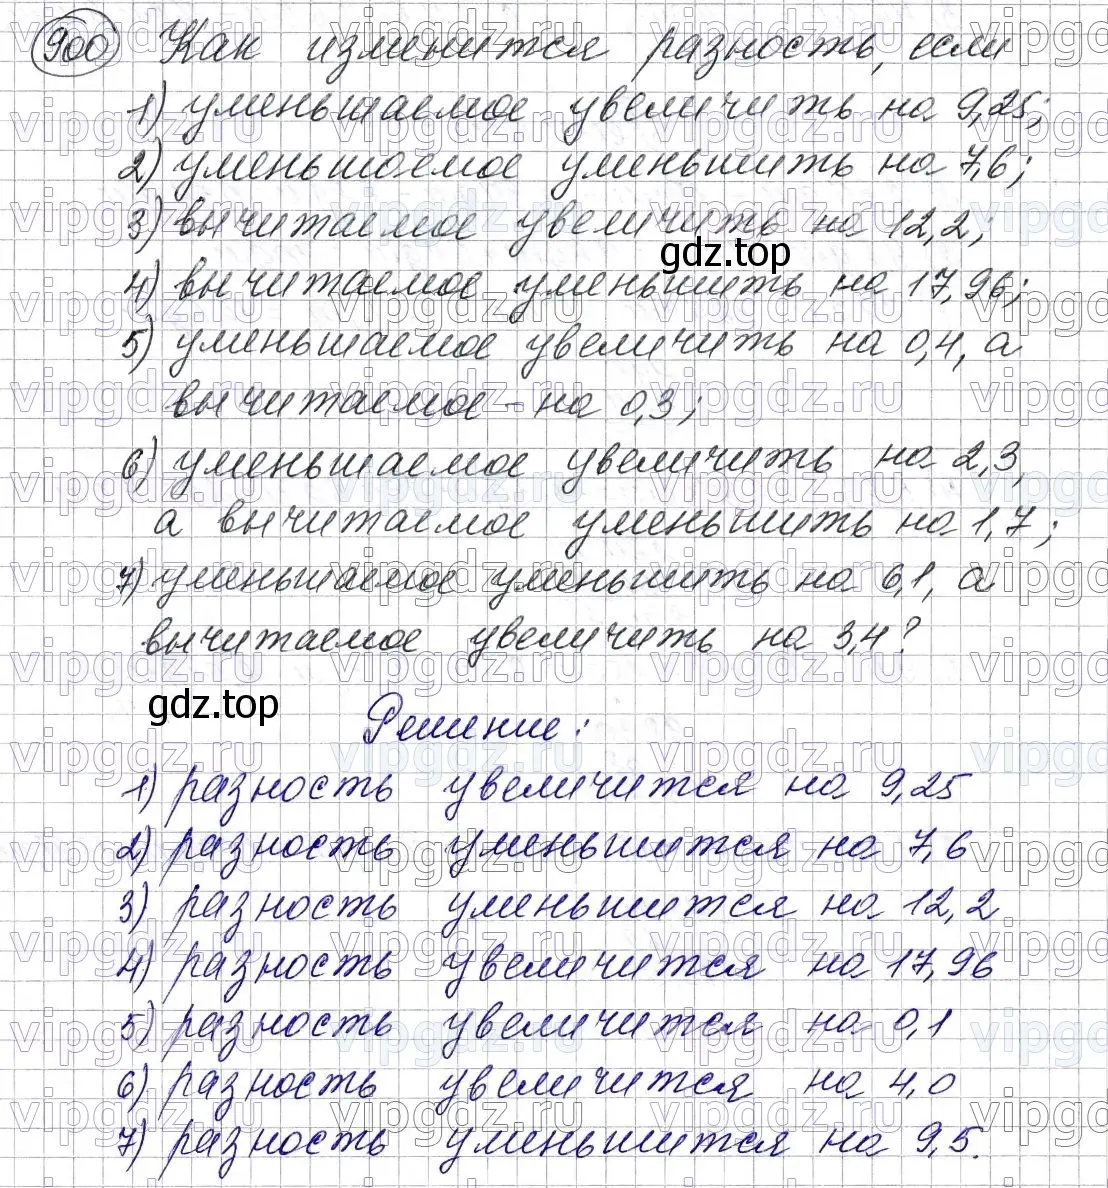 900 Как изменится разность, если
1) уменьшаемое увеличить на 9,25;
2) уменьшаемое уменьшить на 7,6;
3) вычитаемое увеличить на 12,2;
gdz.top
4) вычитаемое уменьшить на 17,96;
5) уменьшаемое увеличить на 0,4, а
вычитаемое - на 0,3;
6) уменьшаемое увеличить на 2,3,
а вычитаемое уменьшить на 1,7;
7) уменьшаемое уменьшить на 6,1, а
вычитаемое увеличить на 3,4?
gdz.top
Решение:
1) разность увеличится на 9,25
2) разность уменьшится на 7,6
3) разность уменьшится на 12,2
4) разность увеличится на 17,96
5) разность увеличится на 0,1
6) разность увеличится на 4,0
7) разность уменьшится на 9,5.
vipgdz.ru